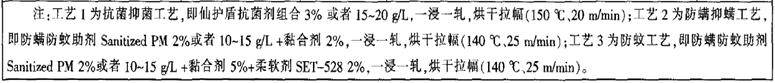 注:工艺1为抗菌抑菌工艺,即仙护盾抗菌剂组合3% 或者15~20 g/L,一浸一轧,烘干拉幅(150 ℃,20 m/min);工艺2为防螨抑螨工艺,
即防螨防蚊助剂 Sanitized PM 2%或者10~15 g/L +黏合剂2%,一浸一轧,烘干拉幅(140 ℃,25 m/min);工艺3为防蚊工艺,即防螨防蚊助剂
Sanitized PM 2%或者10~15 g/L +黏合剂5%+柔软剂SET-528 2%,一浸一轧,烘干拉幅(140℃,25 m/min)。